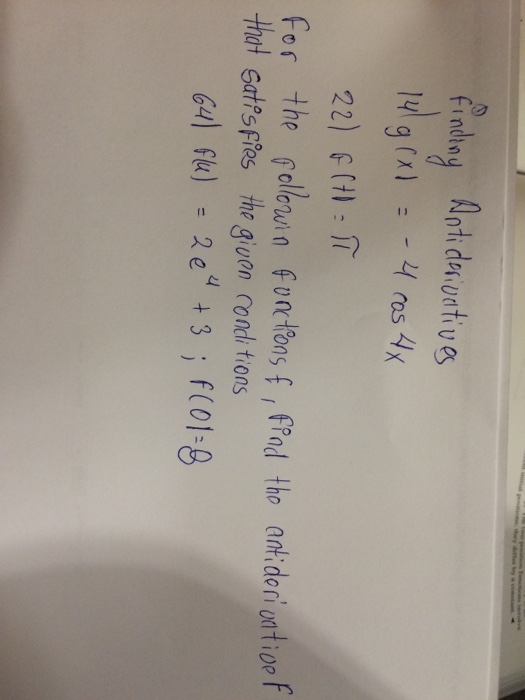 Finding Antiderivatives
14) g(x) = -4 cos 4x
22) f(t) = π
For the followin functions f, find the antiderivative F
that satisfies the given conditions
64) f(u) = 2e^4 + 3 ; F(0) = 8